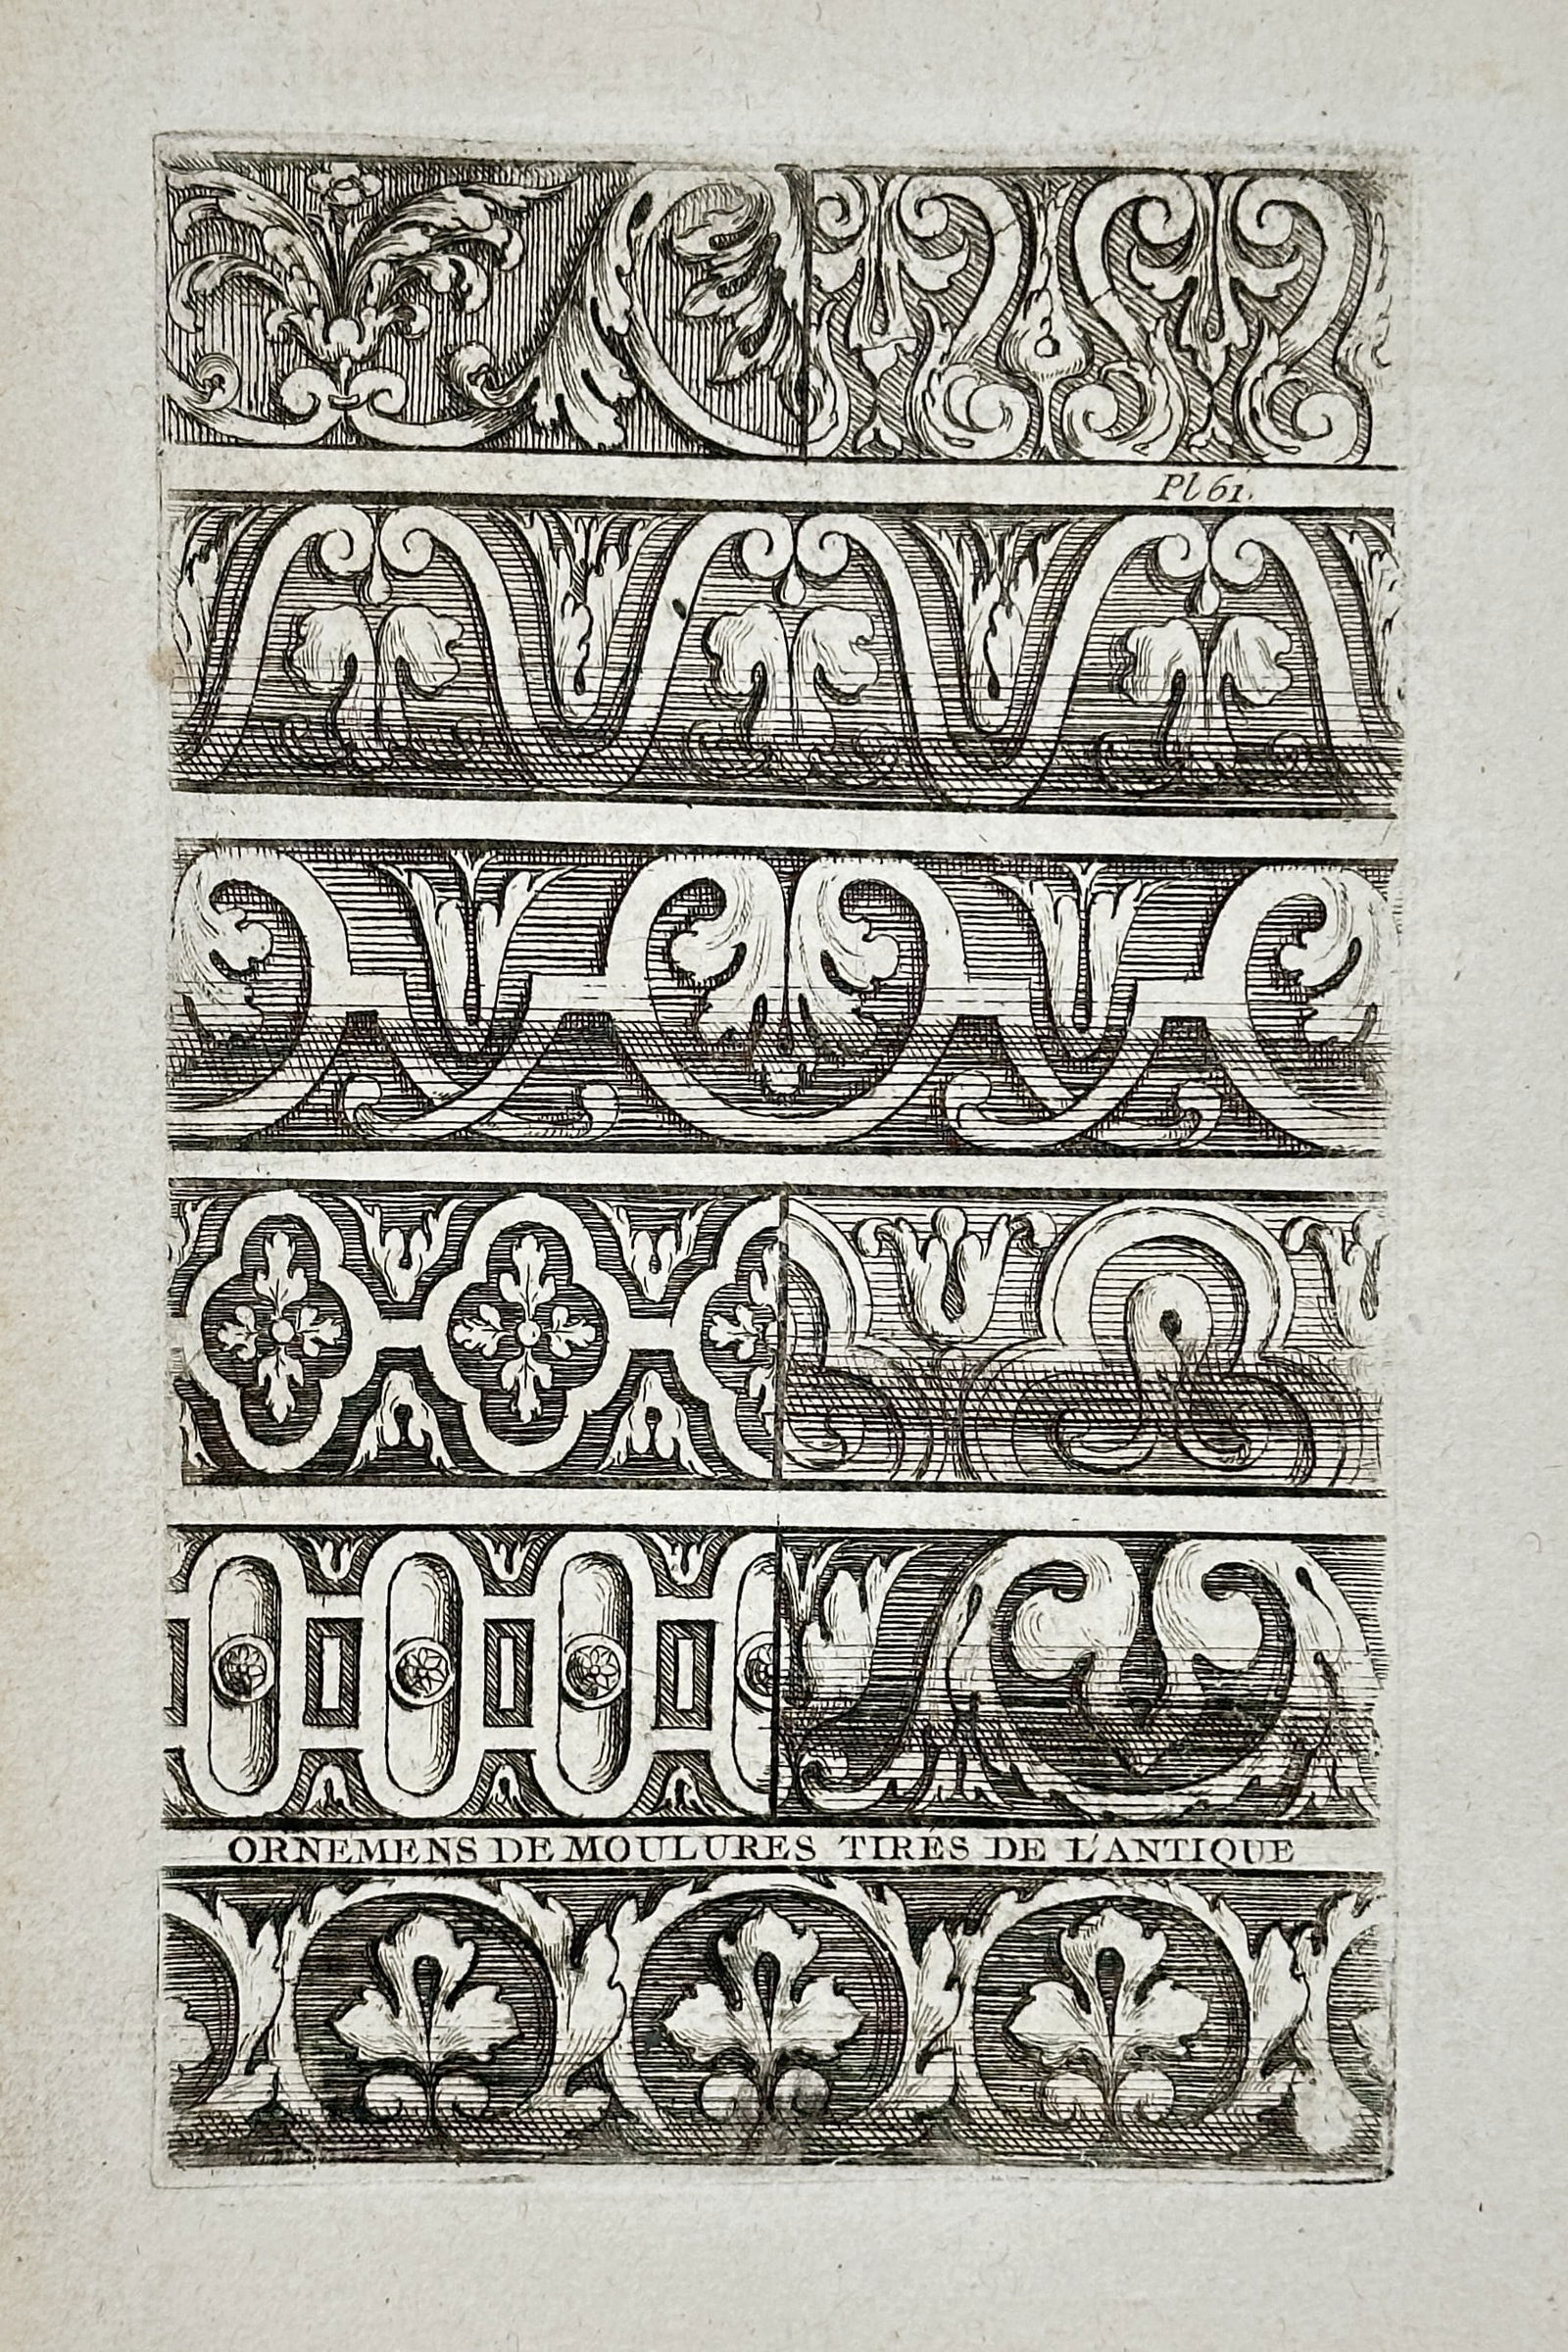 Pl 61.
ORNEMENS DE MOULURES TIRÉS DE L'ANTIQUE